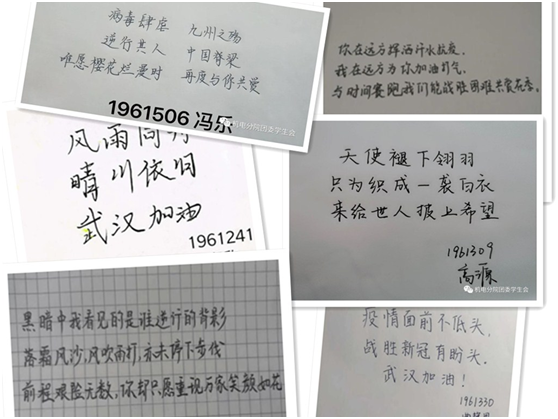 病毒肆虐 九州之殇
逆行其人 中国脊梁
唯愿樱花烂漫时 再度与你共赏
1961506 冯乐
机电分院团委学生会
你在远方挥洒汗水救援,
我在远方为你加油打气,
与时间赛跑我们能战胜困难共赏花香。
风雨同
晴川依旧
武汉加油
1961241
天使褪下翎羽
只为织成一袭白衣
来给世人披上希望
1961309
高源
机电分院团委学生会
黑暗中我看见的是谁逆行的背影
落霜风沙,风吹雨打,亦未停下步伐
前程艰险无数,你却只愿重现万家笑颜如花
疫情面前不低头,
战胜新冠有盼头,
武汉加油!
1961330